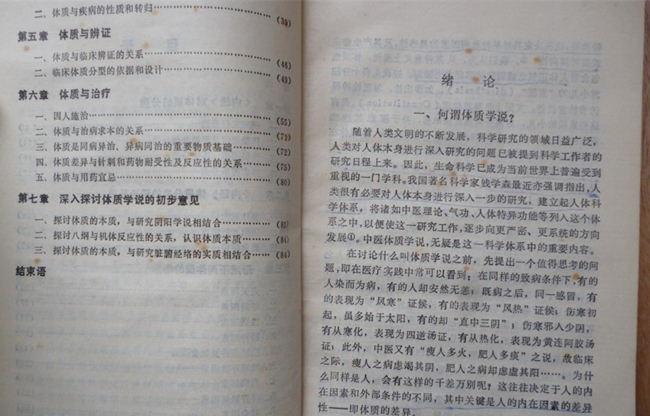 二、体质与疾病的性质和转归……………(39)
第五章 体质与辨证
一、体质与临床辨证的关系……………(46)
二、临床体质分型的依据和设计……………(49)
第六章 体质与治疗
一、因人施治……………(55)
二、体质与治病求本的关系……………(71)
三、体质是同病异治、异病同治的重要物质基础……………(72)
四、体质差异与针刺和药物耐受性及反应性的关系……(75)
五、体质与用药宜忌……………(80)
第七章 深入探讨体质学说的初步意见
一、探讨体质的本质，与研究阴阳学说相结合……………(83)
二、探讨八纲与机体反应性的关系，认识体质本质……(84)
三、探讨体质的本质，与研究脏腑经络的实质相结合……(84)
结束语
绪 论
一、何谓体质学说？
随着人类文明的不断发展，科学研究的领域日益广泛，
人类对人体本身进行深入研究的问题已被提到科学工作者的
研究日程上来。因此，生命科学已成为当前世界上普遍受到
重视的一门学科。我国著名科学家钱学森最近亦强调指出，人
类很有必要对人体本身进行深入一步的研究，建立起人体科
学体系，将诸如中医理论、气功、人体特异功能等列入这个体
系之中，以便使这一研究工作，逐步向更严密、更系统的方向
发展①。中医体质学说，无疑是这一科学体系中的重要内容。
在讨论什么叫体质学说之前，先提出一个值得思考的问
题，即在医疗实践中常可以看到：在同样的致病条件下，有的
人染而为病，有的人却安然无恙；既病之后，同一感冒，有
的表现为“风寒”证候，有的表现为“风热”证候；伤寒初
起，虽多始于太阳，有的却“直中三阴”；伤寒邪入少阴，
有从寒化，表现为四逆汤证，有从热化，表现为黄连阿胶汤
证；此外，中医又有“瘦人多火，肥人多痰”之说，故临床
之际，瘦人之病虑竭其阴，肥人之病却虑虚其阳……。为什
么同样是人，会有这样的千差万别呢？这往往决定于人的内
在因素和外部条件的不同，其中关键是人的内在因素的差异
性——即体质的差异。